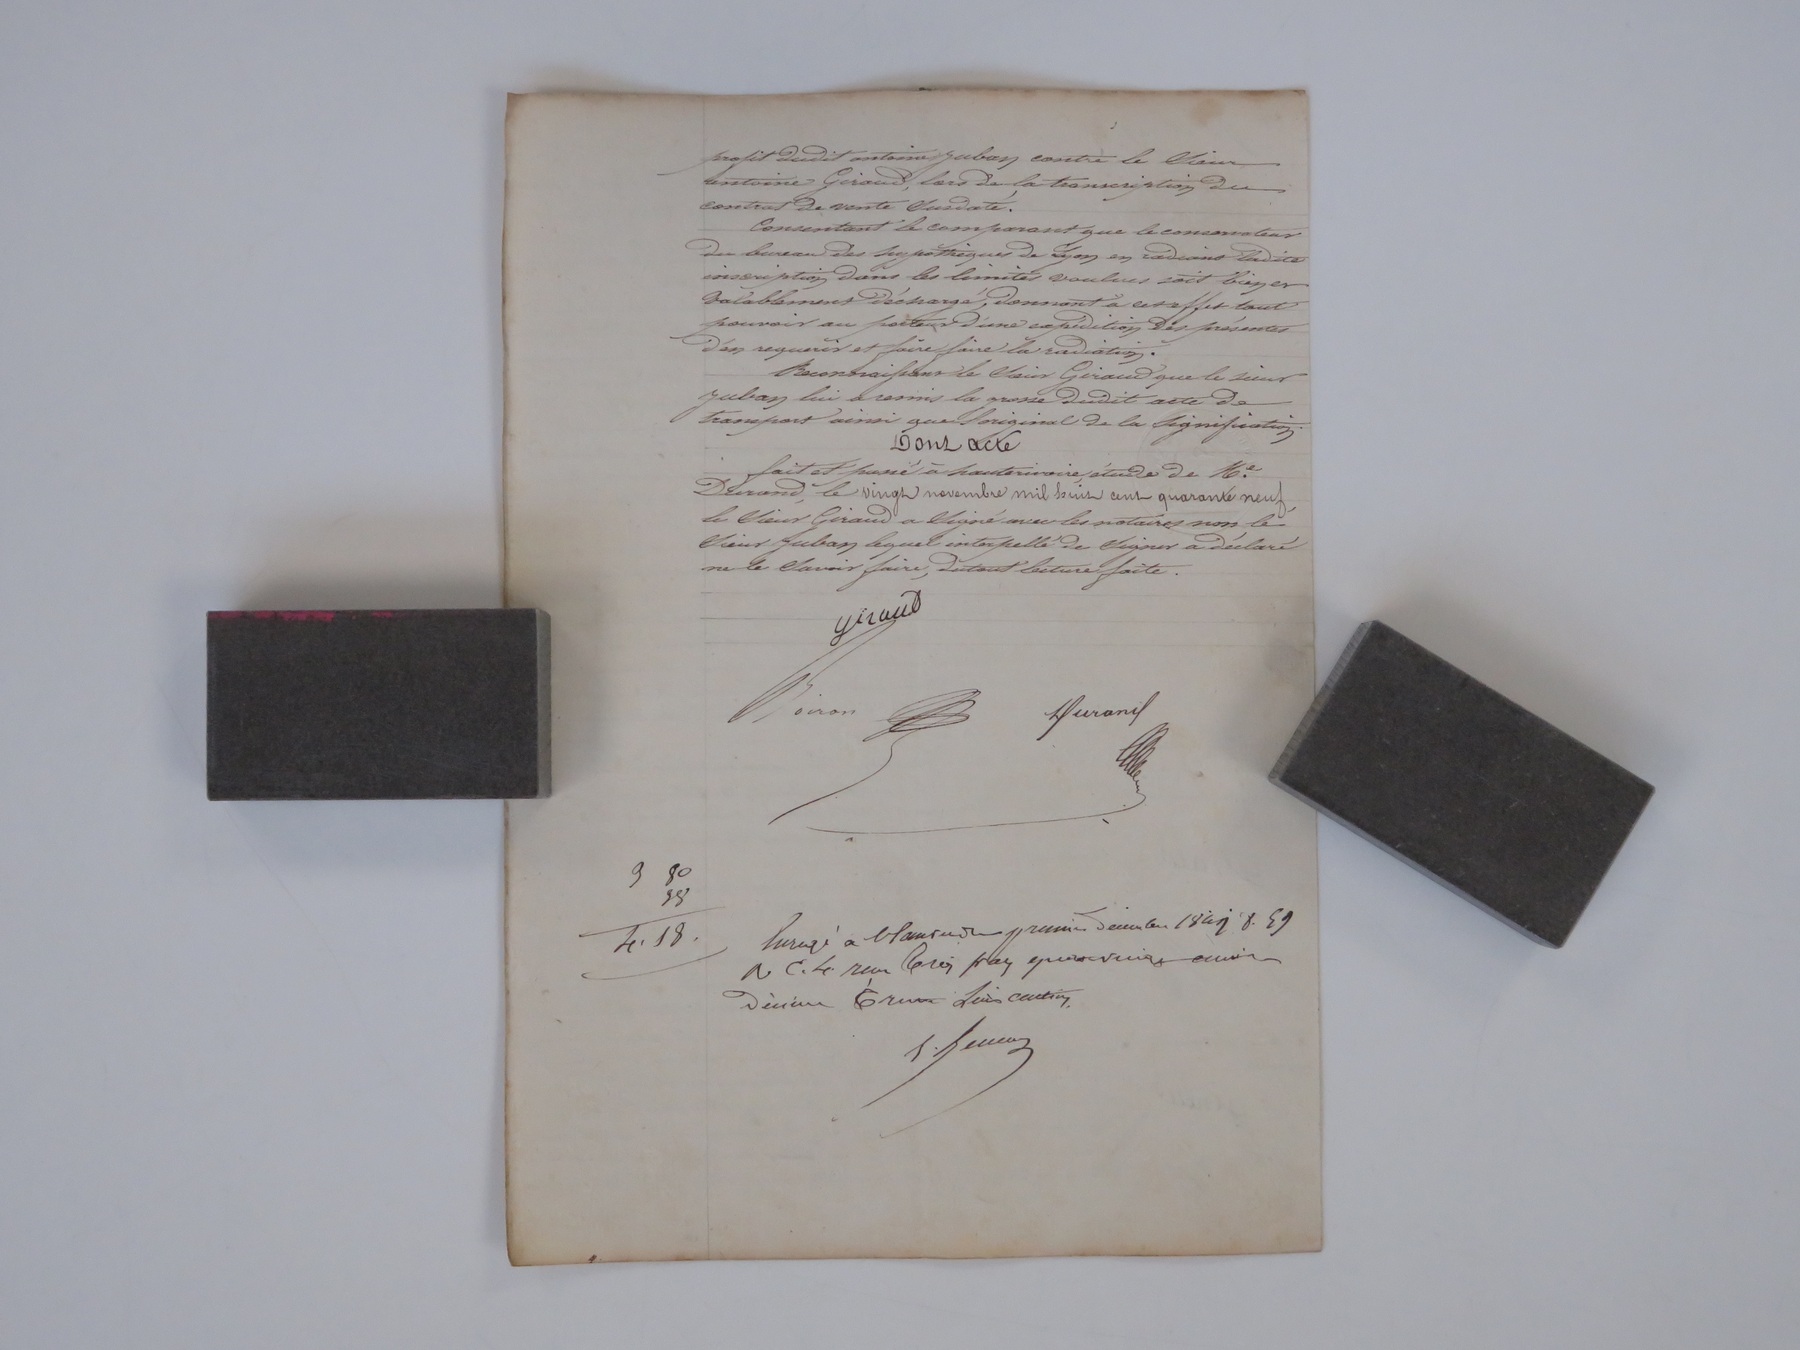 profit dudit antoine Juban contre le Sieur
antoine Giraud, lors de la transcription du
contrat de vente susdaté.
Consentant le comparant que le conservateur
du bureau des hypothèques de Lyon en radiant ladite
inscription dans les limites voulues soit bien et
valablement déchargé, donnant à cet effet tout
pouvoir au porteur d'une expédition des présentes
d'en requérir et faire faire la radiation.
Reconnaissant le Sieur Giraud que le sieur
Juban lui a remis la grosse dudit acte de
transport ainsi que l'original de la signification.
Dont acte
fait et passé à hauterivoire, étude de Me
Durand, le vingt novembre mil huit cent quarante neuf,
le Sieur Giraud a signé avec les notaires non le
Sieur Juban lequel interpellé de signer a déclaré
ne le savoir faire, de tout lecture faite.
giraud
Voiron Durand
3 80
38
4. 18.
premier décembre 1849 f. 59
R C. 4. reçu trois fr
Décime trente huit centimes